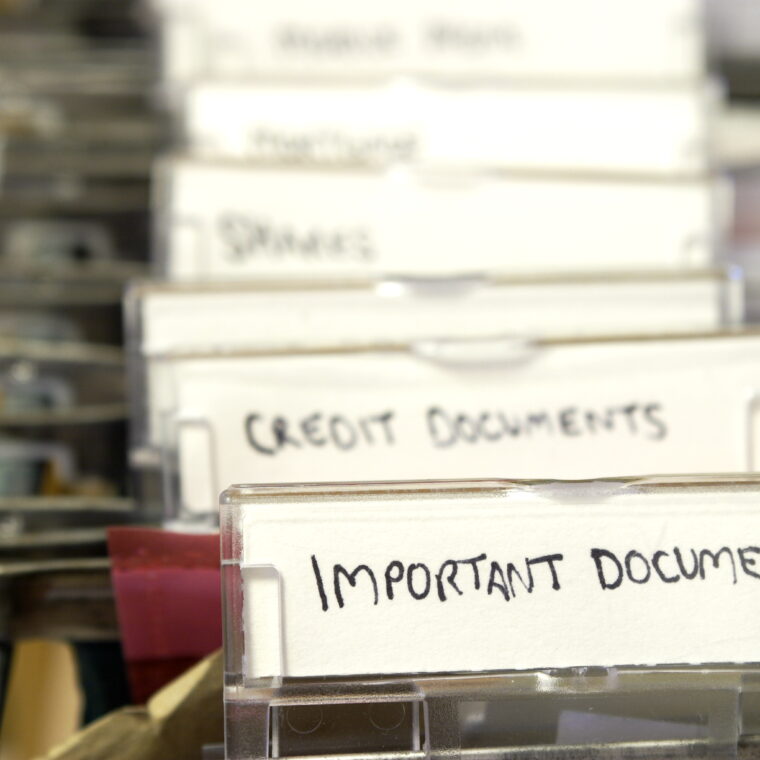 SHARES
CREDIT DOCUMENTS
IMPORTANT DOCUME